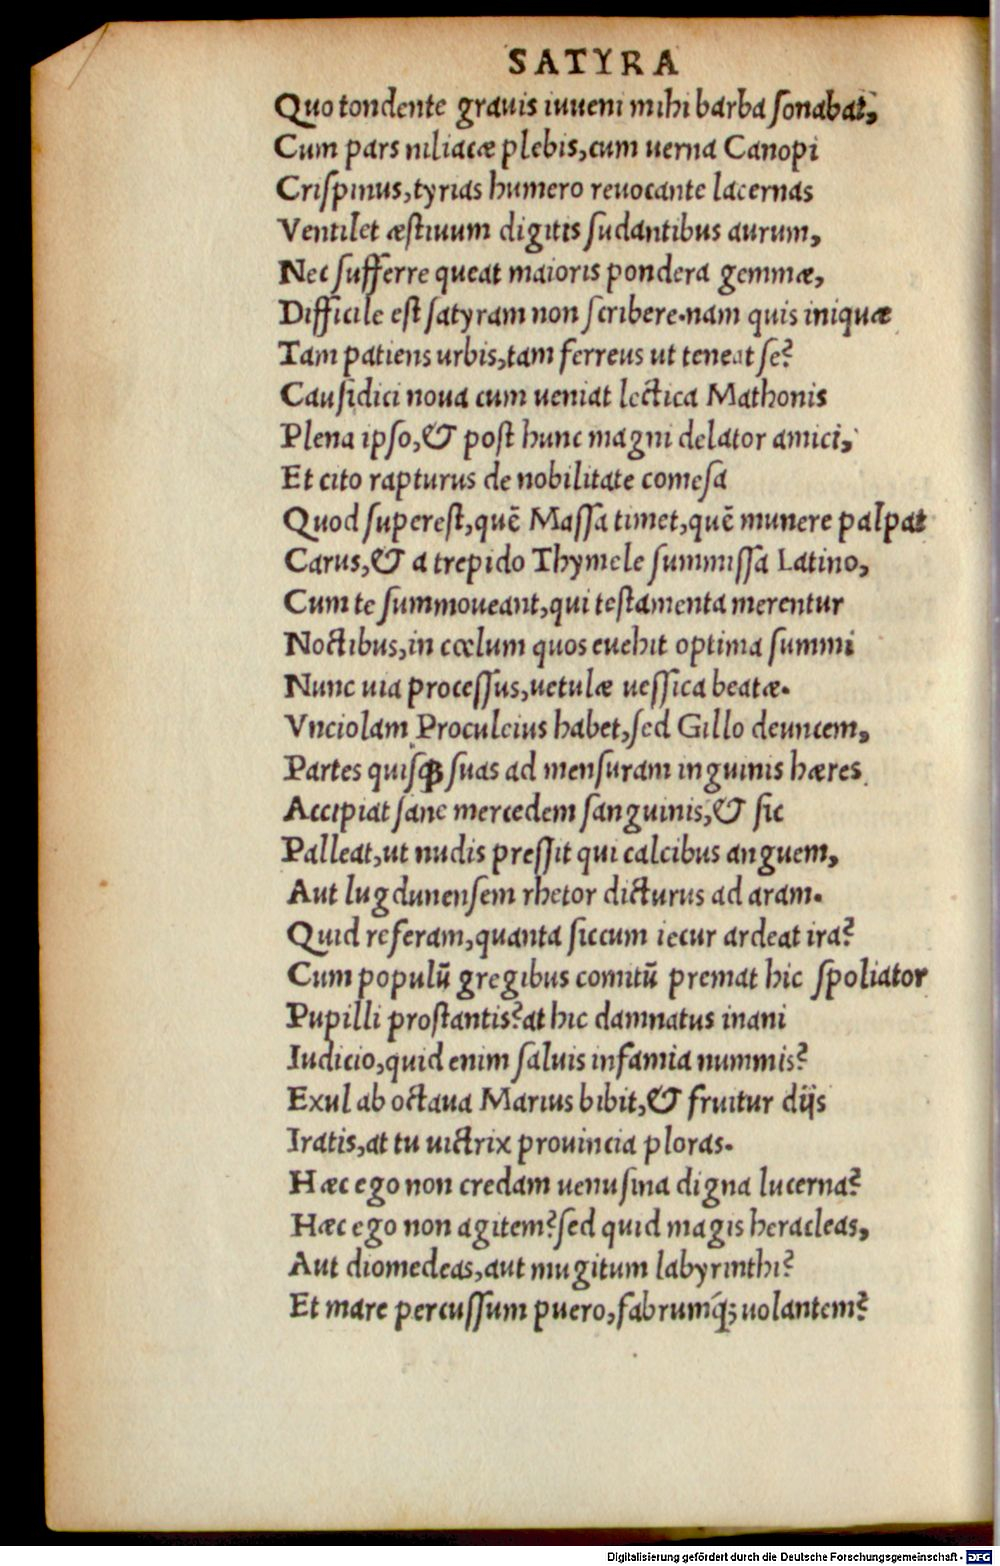 SATYRA
Quo tondente grauis iuueni mihi barba ſonabat,
Cum pars niliacæ plebis,cum uerna Canopi
Criſpinus,tyrias humero reuocante lacernas
Ventilet æſtiuum digitis ſudantibus aurum,
Nec ſufferre queat maioris pondera gemmæ,
Difficile eſt ſatyram non ſcribere.nam quis iniquæ
Tam patiens urbis,tam ferreus ut teneat ſe?
Cauſidici noua cum ueniat lectica Mathonis
Plena ipſo,& poſt hunc magni delator amici,
Et cito rapturus de nobilitate comeſa
Quod ſupereſt,quē Maſſa timet,quē munere palpat
Carus,& a trepido Thymele ſummiſſa Latino,
Cum te ſummoueant,qui teſtamenta merentur
Noctibus,in cœlum quos euehit optima ſummi
Nunc uia proceſſus,uetulæ ueſſica beatæ.
Vnciolam Proculeius habet,ſed Gillo deuncem,
Partes quiſq; ſuas ad menſuram inguinis hæres.
Accipiat ſane mercedem ſanguinis,& ſic
Palleat,ut nudis preſſit qui calcibus anguem,
Aut lugdunenſem rhetor dicturus ad aram.
Quid referam,quanta ſiccum iecur ardeat ira?
Cum populū gregibus comitū premat hic ſpoliator
Pupilli proſtantis?at hic damnatus inani
Iudicio,quid enim ſaluis infamia nummis?
Exul ab octaua Marius bibit,& fruitur dijs
Iratis,at tu uictrix prouincia ploras.
Hæc ego non credam uenuſina digna lucerna?
Hæc ego non agitem?ſed quid magis heracleas,
Aut diomedeas,aut mugitum labyrinthi?
Et mare percuſſum puero,fabrumq́; uolantem?
Digitalisierung gefördert durch die Deutsche Forschungsgemeinschaft - DFG